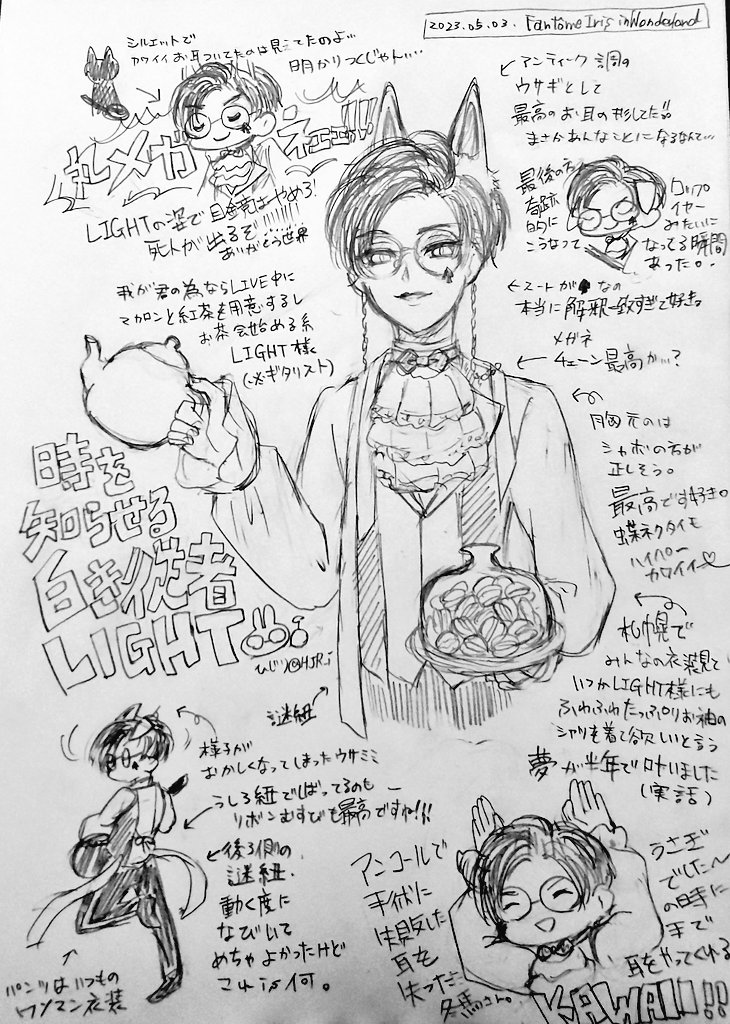 2023.05.03. Fantôme Iris in Wonderland
シルエットで
カワイイお耳ついてたのは見えてたのよ…
明かりつくじゃん…
丸メガネェェェ!!!
LIGHTの姿で目金竟はやめろ!
死人が出るぞ!!!!!!
ありがとう世界
アンティーク調の
ウサギとして
最高のお耳の形してた!!
まさかあんなことになるなんて…
最後の方
奇跡
的に
こうなって
ロップ
イヤー
みたいに
なってる瞬間
あった。
我が君の為ならLIVE中に
マカロンと紅茶を用意するし
お茶会始める系
LIGHT様
(ギタリスト)
スートが♠なの
本当に解釈一致すぎて好き
メガネ
チェーン最高か…?
胸元のは
シャボの方が
正しそう。
最高です好き。
蝶ネクタイも
ハイパー
カワイイ♡
時を
知らせる
白き従者
LIGHT
ひじり@HJR_i
謎紐
札幌で
みんなの衣装見て
いつかLIGHT様にも
ふわふわたっぷりお袖の
シャツを着て欲しいと言う
夢が半年で叶いました
(実話)
様子が
おかしくなってしまったウサミミ
うしろ紐でしばってるのも
リボンむすびも最高ですヤ!!!
後ろ側の
謎紐.
動く度に
なびいて
めちゃよかったけど
これis何。
パンツはいつもの
ワンマン衣装
アンコールで
手術に
失敗した
耳を
失った
冬馬さん。
うさぎ
でした〜
の時に
手で
耳をやってくれる
KAWAII!!